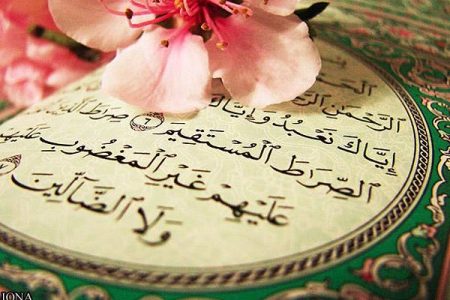 الرَّحْمَٰنِ
إِيَّاكَ نَعْبُدُ وَإِيَّاكَ
ٱلصِّرَاطَ ٱلْمُسْتَقِيمَ ٦ صِرَاطَ ٱلَّذِينَ
عَلَيْهِمْ غَيْرِ ٱلْمَغْضُوبِ عَلَيْهِمْ
وَلَا ٱلضَّآلِّينَ ٧
IQNA